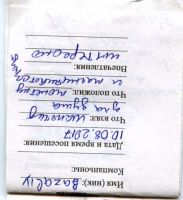 Имя (ник): Bazaliy
Компаньоны:
Дата и время посещения:
10.08.2017
Что взял: шампунь
для душа
Что положил: монетку
и магнитик
Впечатления:
интересно